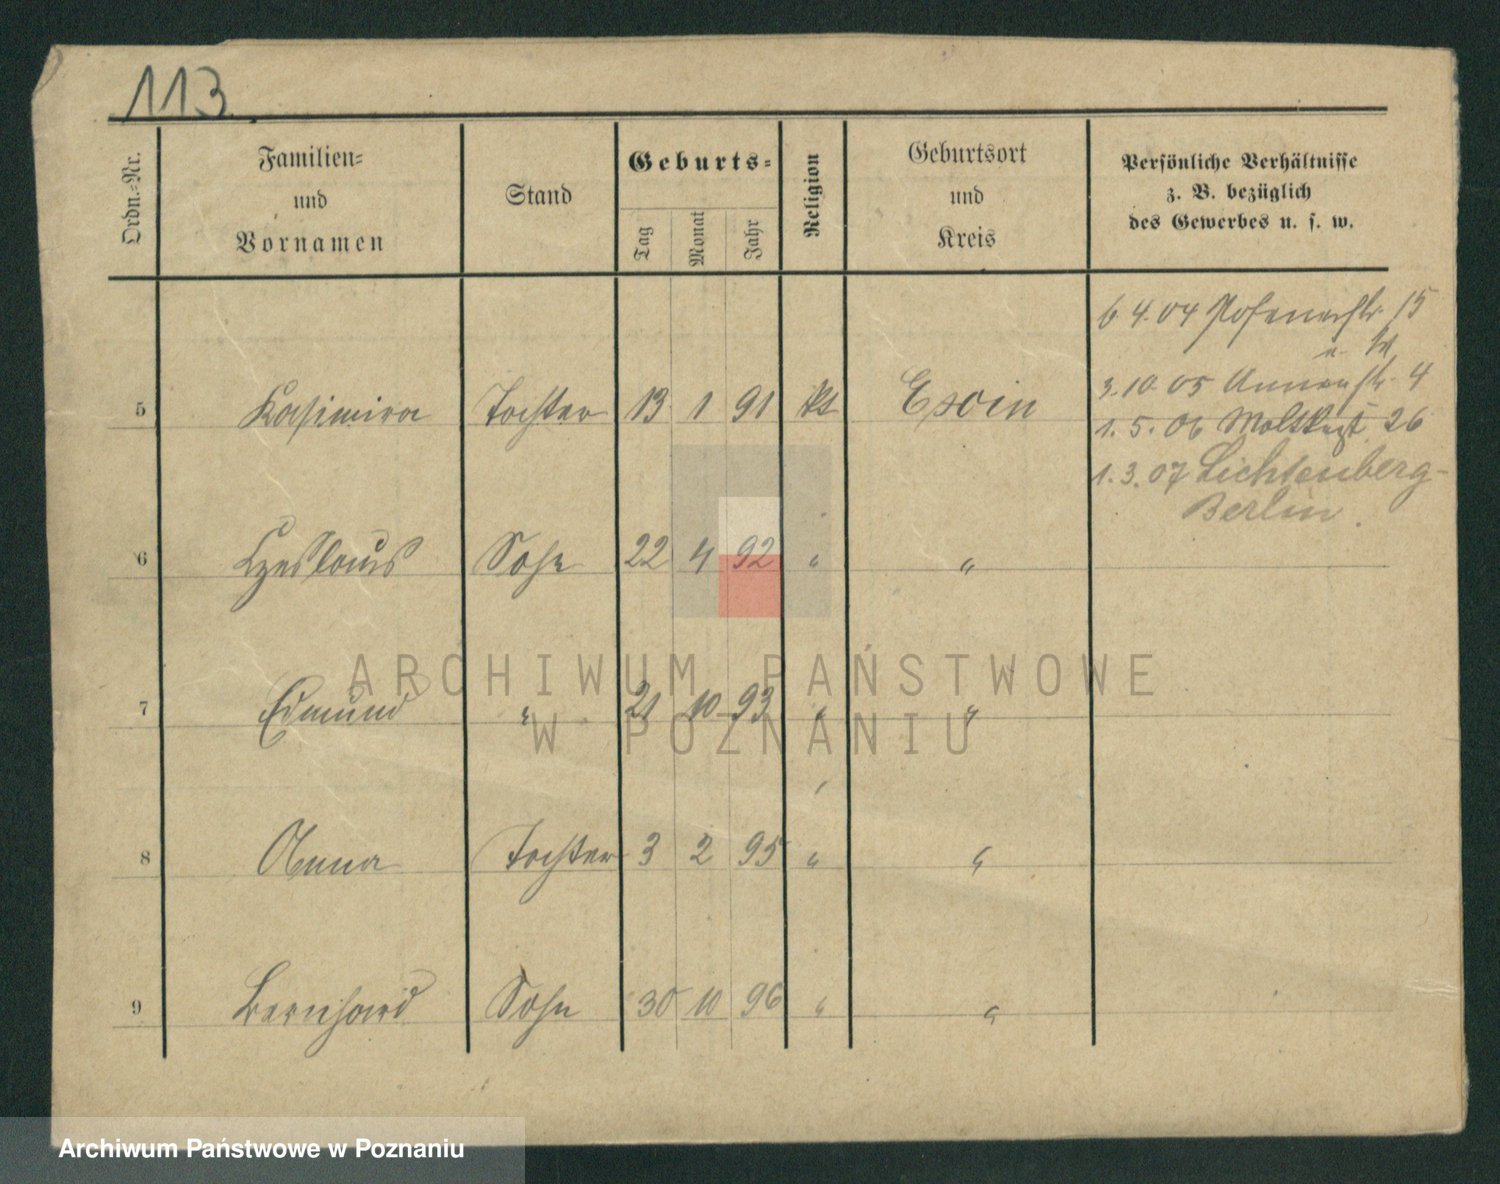 113
Ordn.-Nr.
Familien-
und
Vornamen
Stand
Geburts-
Tag
Monat
Jahr
Religion
Geburtsort
und
Kreis
Persönliche Verhältnisse
z. B. bezüglich
des Gewerbes u. s. w.
6 4.04 Posenerstr. 15
3.10.05 Annenstr. 4
5 Kasimira Tochter 13 1 91 kt Exin
1.5.06 Moltkest 26
1.3.07 Lichtenberg-
Berlin.
6 Czeslaus Sohn 22 4 92 " "
ARCHIWUM PAŃSTWOWE
7 Edmund " 21 10 93 " "
W POZNANIU
8 Anna Tochter 3 2 95 " "
9 Bernhard Sohn 30 10 96 " "
Archiwum Państwowe w Poznaniu